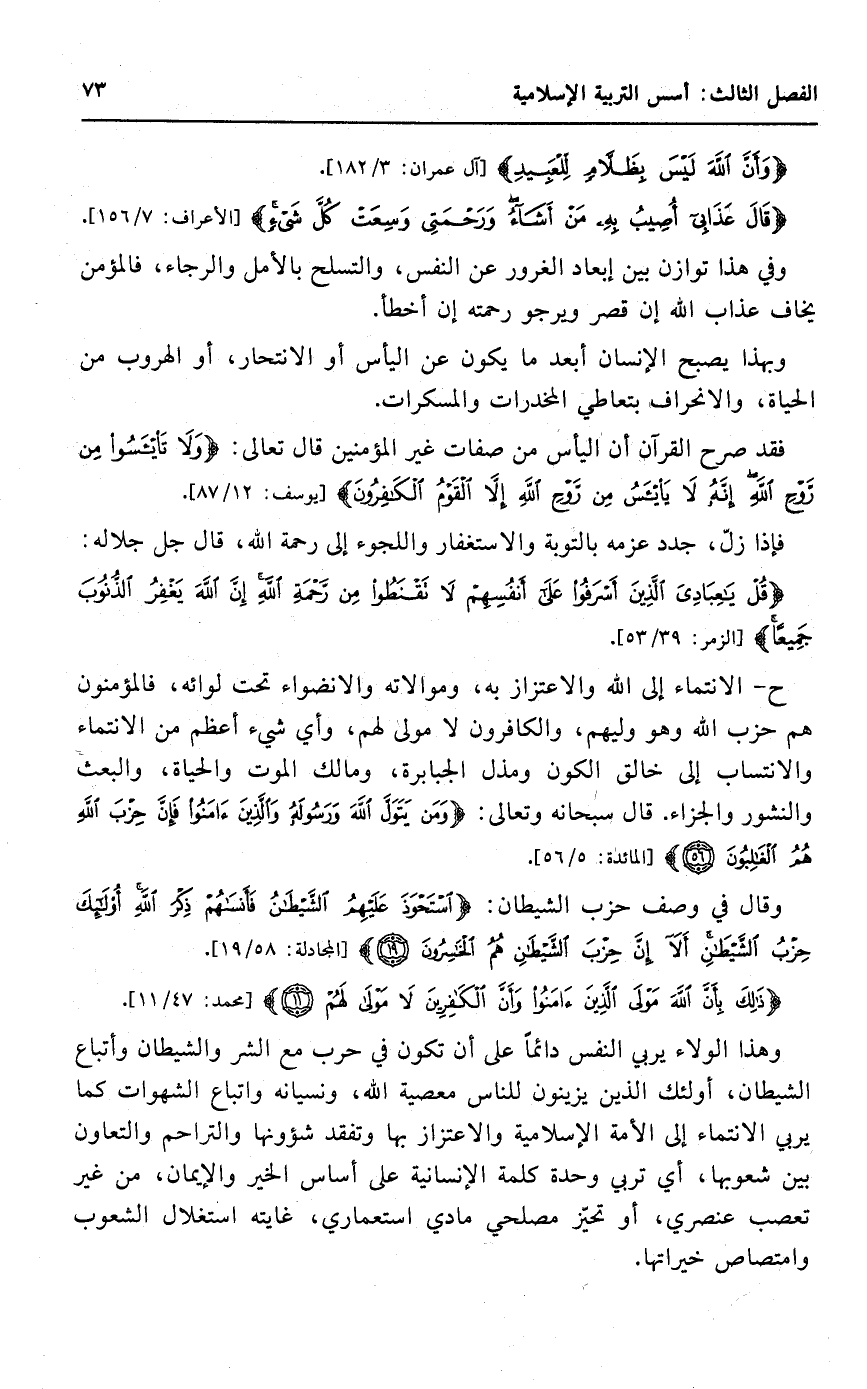 الفصل الثالث: أسس التربية الإسلامية ٧٣
﴿وَأَنَّ ٱللَّهَ لَيْسَ بِظَلَّامٍ لِّلْعَبِيدِ﴾ [آل عمران: ١٨٢/٣].
﴿قَالَ عَذَابِيٓ أُصِيبُ بِهِۦ مَنْ أَشَآءُۖ وَرَحْمَتِي وَسِعَتْ كُلَّ شَيْءٍۚ﴾ [الأعراف: ١٥٦/٧].
وفي هذا توازن بين إبعاد الغرور عن النفس، والتسلح بالأمل والرجاء، فالمؤمن
يخاف عذاب الله إن قصر ويرجو رحمته إن أخطأ.
وبهذا يصبح الإنسان أبعد ما يكون عن اليأس أو الانتحار، أو الهروب من
الحياة، والانحراف بتعاطي المخدرات والمسكرات.
فقد صرح القرآن أن اليأس من صفات غير المؤمنين قال تعالى: ﴿وَلَا تَاْيْـَٔسُواْ مِن
رَّوْحِ ٱللَّهِۖ إِنَّهُۥ لَا يَاْيْـَٔسُ مِن رَّوْحِ ٱللَّهِ إِلَّا ٱلْقَوْمُ ٱلْكَٰفِرُونَ﴾ [يوسف: ٨٧/١٢].
فإذا زلّ، جدد عزمه بالتوبة والاستغفار واللجوء إلى رحمة الله، قال جل جلاله:
﴿قُلْ يَٰعِبَادِيَ ٱلَّذِينَ أَسْرَفُواْ عَلَىٰٓ أَنفُسِهِمْ لَا تَقْنَطُواْ مِن رَّحْمَةِ ٱللَّهِۚ إِنَّ ٱللَّهَ يَغْفِرُ ٱلذُّنُوبَ
جَمِيعًاۚ﴾ [الزمر: ٥٣/٣٩].
ح- الانتماء إلى الله والاعتزاز به، وموالاته والانضواء تحت لوائه، فالمؤمنون
هم حزب الله وهو وليهم، والكافرون لا مولى لهم، وأي شيء أعظم من الانتماء
والانتساب إلى خالق الكون ومذل الجبابرة، ومالك الموت والحياة، والبعث
والنشور والجزاء. قال سبحانه وتعالى: ﴿وَمَن يَتَوَلَّ ٱللَّهَ وَرَسُولَهُۥ وَٱلَّذِينَ ءَامَنُواْ فَإِنَّ حِزْبَ ٱللَّهِ
هُمُ ٱلْغَٰلِبُونَ ٥٦﴾ [المائدة: ٥٦/٥].
وقال في وصف حزب الشيطان: ﴿ٱسْتَحْوَذَ عَلَيْهِمُ ٱلشَّيْطَٰنُ فَأَنسَىٰهُمْ ذِكْرَ ٱللَّهِۚ أُوْلَٰٓئِكَ
حِزْبُ ٱلشَّيْطَٰنِۚ أَلَآ إِنَّ حِزْبَ ٱلشَّيْطَٰنِ هُمُ ٱلْخَٰسِرُونَ ١٩﴾ [المجادلة: ١٩/٥٨].
﴿ذَٰلِكَ بِأَنَّ ٱللَّهَ مَوْلَى ٱلَّذِينَ ءَامَنُواْ وَأَنَّ ٱلْكَٰفِرِينَ لَا مَوْلَىٰ لَهُمْ ١١﴾ [محمد: ١١/٤٧].
وهذا الولاء يربي النفس دائماً على أن تكون في حرب مع الشر والشيطان وأتباع
الشيطان، أولئك الذين يزينون للناس معصية الله، ونسيانه واتباع الشهوات كما
يربي الانتماء إلى الأمة الإسلامية والاعتزاز بها وتفقد شؤونها والتراحم والتعاون
بين شعوبها، أي تربي وحدة كلمة الإنسانية على أساس الخير والإيمان، من غير
تعصب عنصري، أو تحيّز مصلحي مادي استعماري، غايته استغلال الشعوب
وامتصاص خيراتها.